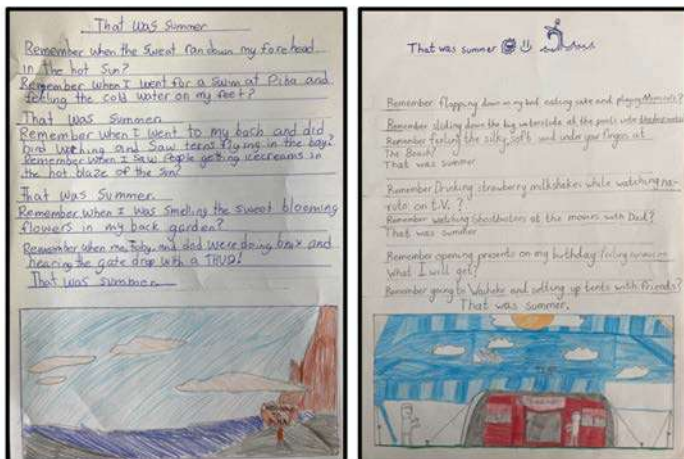 That was summer
Remember when the sweat ran down my forehead
in the hot sun?
Remember when I went for a swim at Piha and
feeling the cold water on my feet?
That was summer
Remember when I went to my bach and did
bird watching and saw terns flying in the bay?
Remember when I saw people getting icecreams in
the hot blaze of the sun?
That was summer.
Remember when I was smelling the sweet blooming
flowers in my back garden?
Remember when me, Toby and dad were doing bmx and
hearing the gate drop with a THUD!
That was summer
That was summer
Remember flapping down on my bed eating cake and playing
Remember sliding down the big waterslide at the pools with
Remember feeling the silky, soft sand under your fingers at
The Beach?
That was summer
Remember Drinking strawberry milkshakes while watching na-
ruto on t.v. ?
Remember watching Ghostbusters at the movies with Dad?
That was summer
Remember opening presents on my birthday feeling
What I will get?
Remember going to Waiheke and setting up tents with friends?
That was summer.